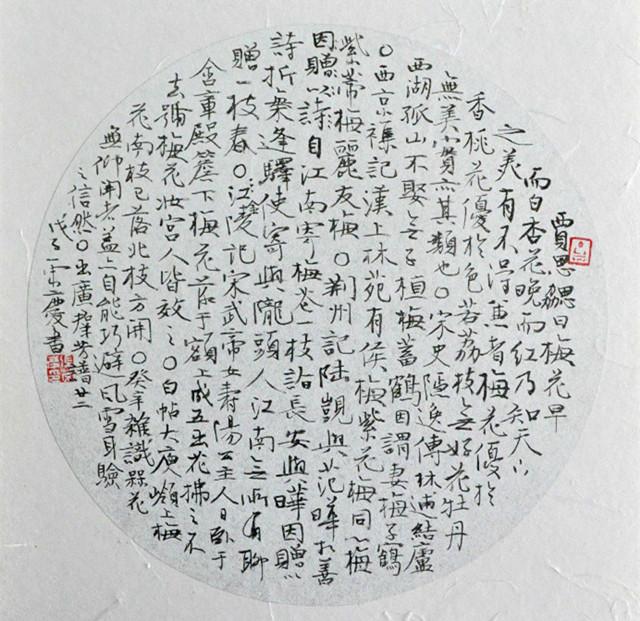 賈思勰曰梅花早
而白杏花晚而紅乃知天下
之美有不得兼者梅花優於
香桃花優於色若荔枝無好花牡丹
無美實亦其類也○宋史隱逸傳林逋結廬
西湖孤山不娶無子植梅蓄鶴因謂妻梅子鶴
○西京襍記漢上林苑有侯梅紫花梅同心梅
紫蒂梅麗友梅○荆州記陸凱與范曄相善
因贈以詩自江南寄梅花一枝詣長安與曄因贈以
詩折梅逢驛使寄與隴頭人江南無所有聊
贈一枝春○江陵記宋武帝女壽陽公主人日臥于
含章殿簷下梅花落于額上成五出花拂之不
去號梅花妝宮人皆效之○白帖大庾嶺上梅
花南枝已落北枝方開○癸辛雜識梅花
無仰開者蓋亦自能巧避風雪耳驗
之信然○出廣群芳譜廿二
慶書